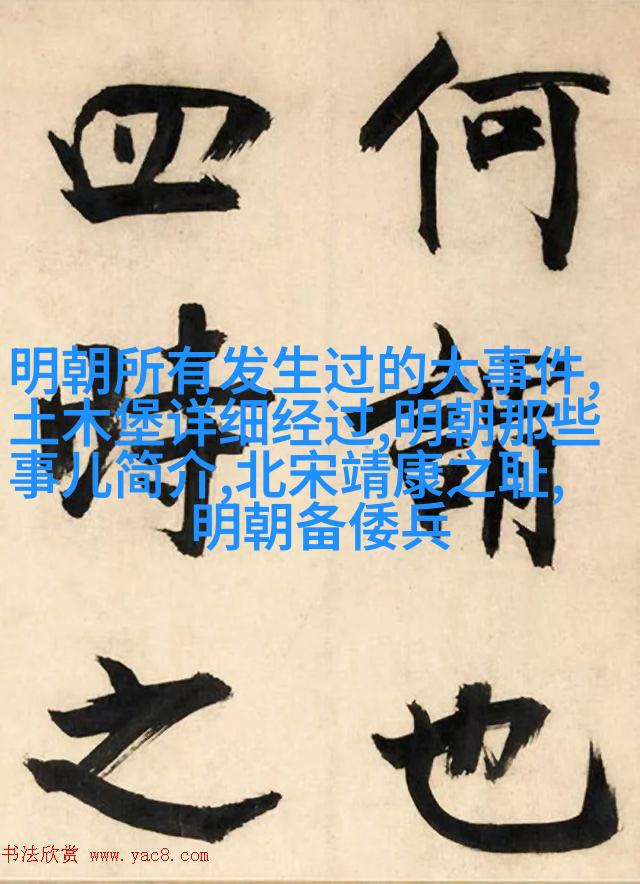 何謂也
四時之
明朝所有发生过的大事件,
土木堡详细经过,明朝那些
事儿简介,北宋靖康之耻,
明朝备倭兵
书法欣赏 www.yac8.com